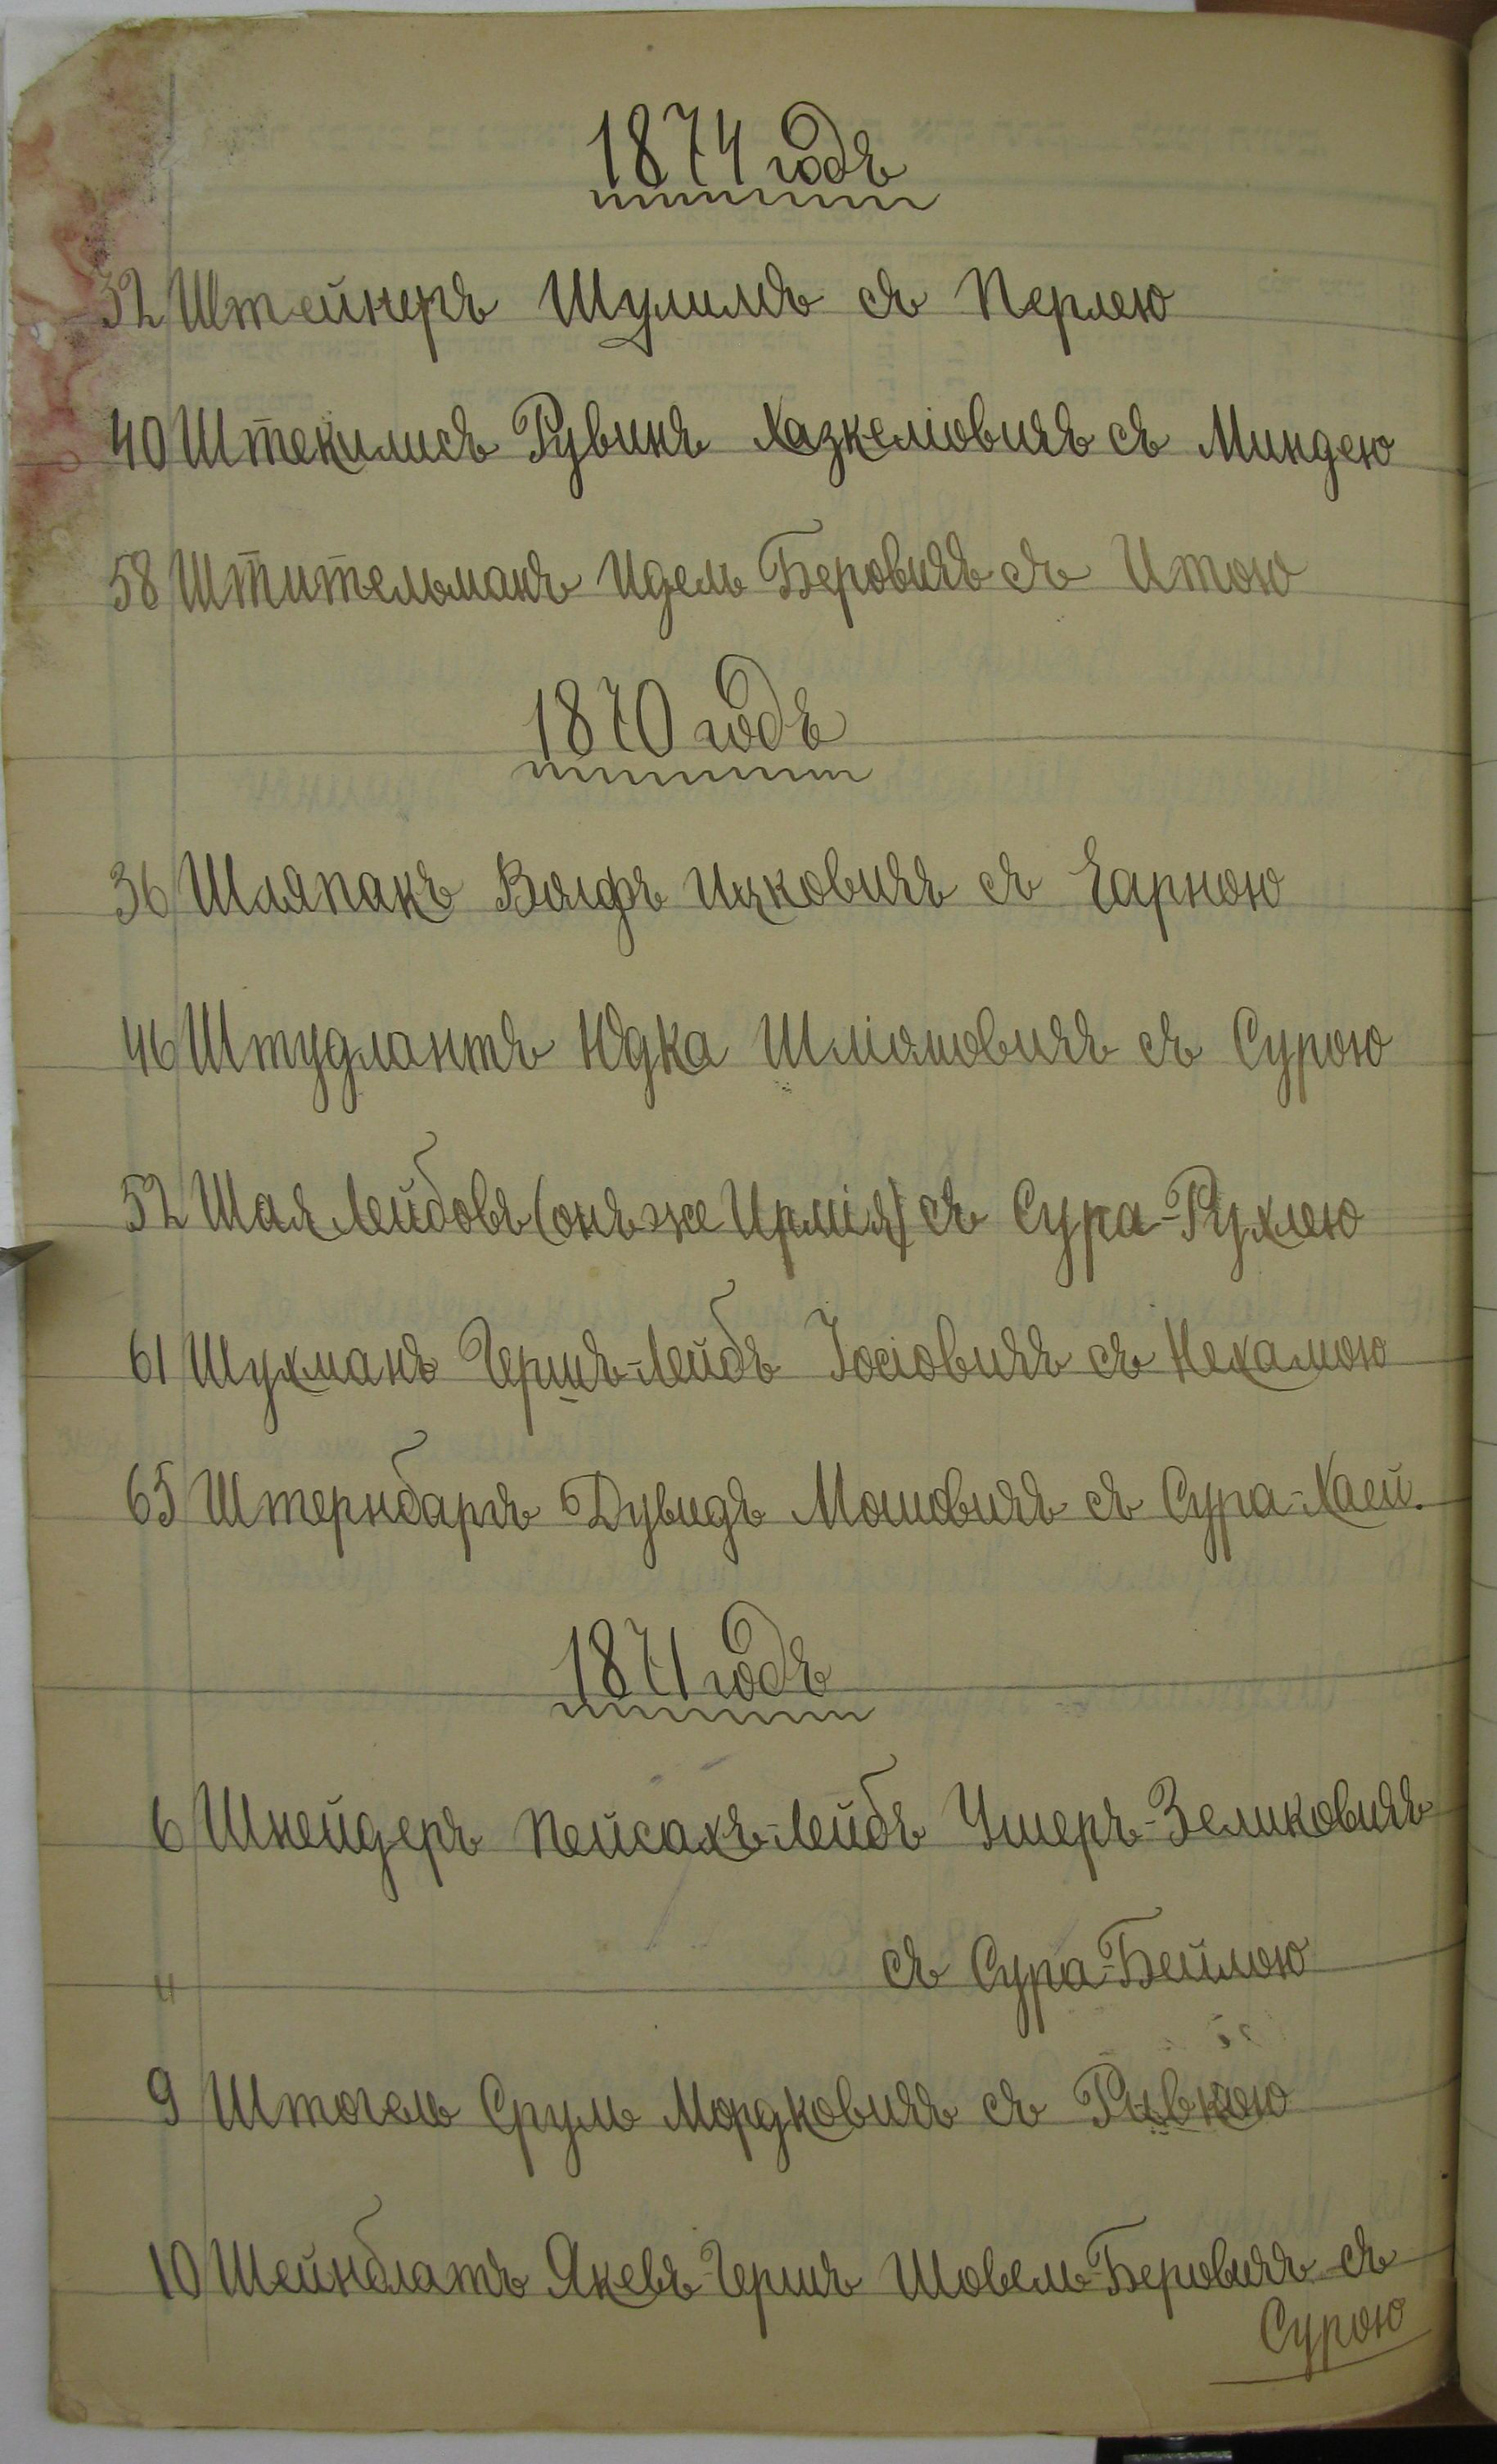 1874 годъ
32 Штейнеръ Шулимъ съ Перлею
40 Штекилисъ Рувинъ Хазкеліовичъ съ Миндею
58 Штительманъ Идель Беровичъ съ Итою
1870 годъ
36 Шляпакъ Волфъ Ицковичъ съ Чарною
46 Штудлантъ Юдка Шліомовичъ съ Сурою
52 Шая Лейбовъ (онъ же Ирмія) съ Сура-Рухлею
61 Шухманъ Гершъ-Лейбъ Іосіовичъ съ Нехамою
65 Штернбаргъ Дувидъ Мошковичъ съ Сура-Хаей.
1871 годъ
6 Шнейдеръ Пейсахъ-Лейбъ Ушеръ-Зеликовичъ
" съ Сура-Бейлою
9 Штогель Сруль Мордковичъ съ Ривкою
10 Шейнблатъ Якевъ-Гершъ Шовель-Беровичъ съ
Сурою